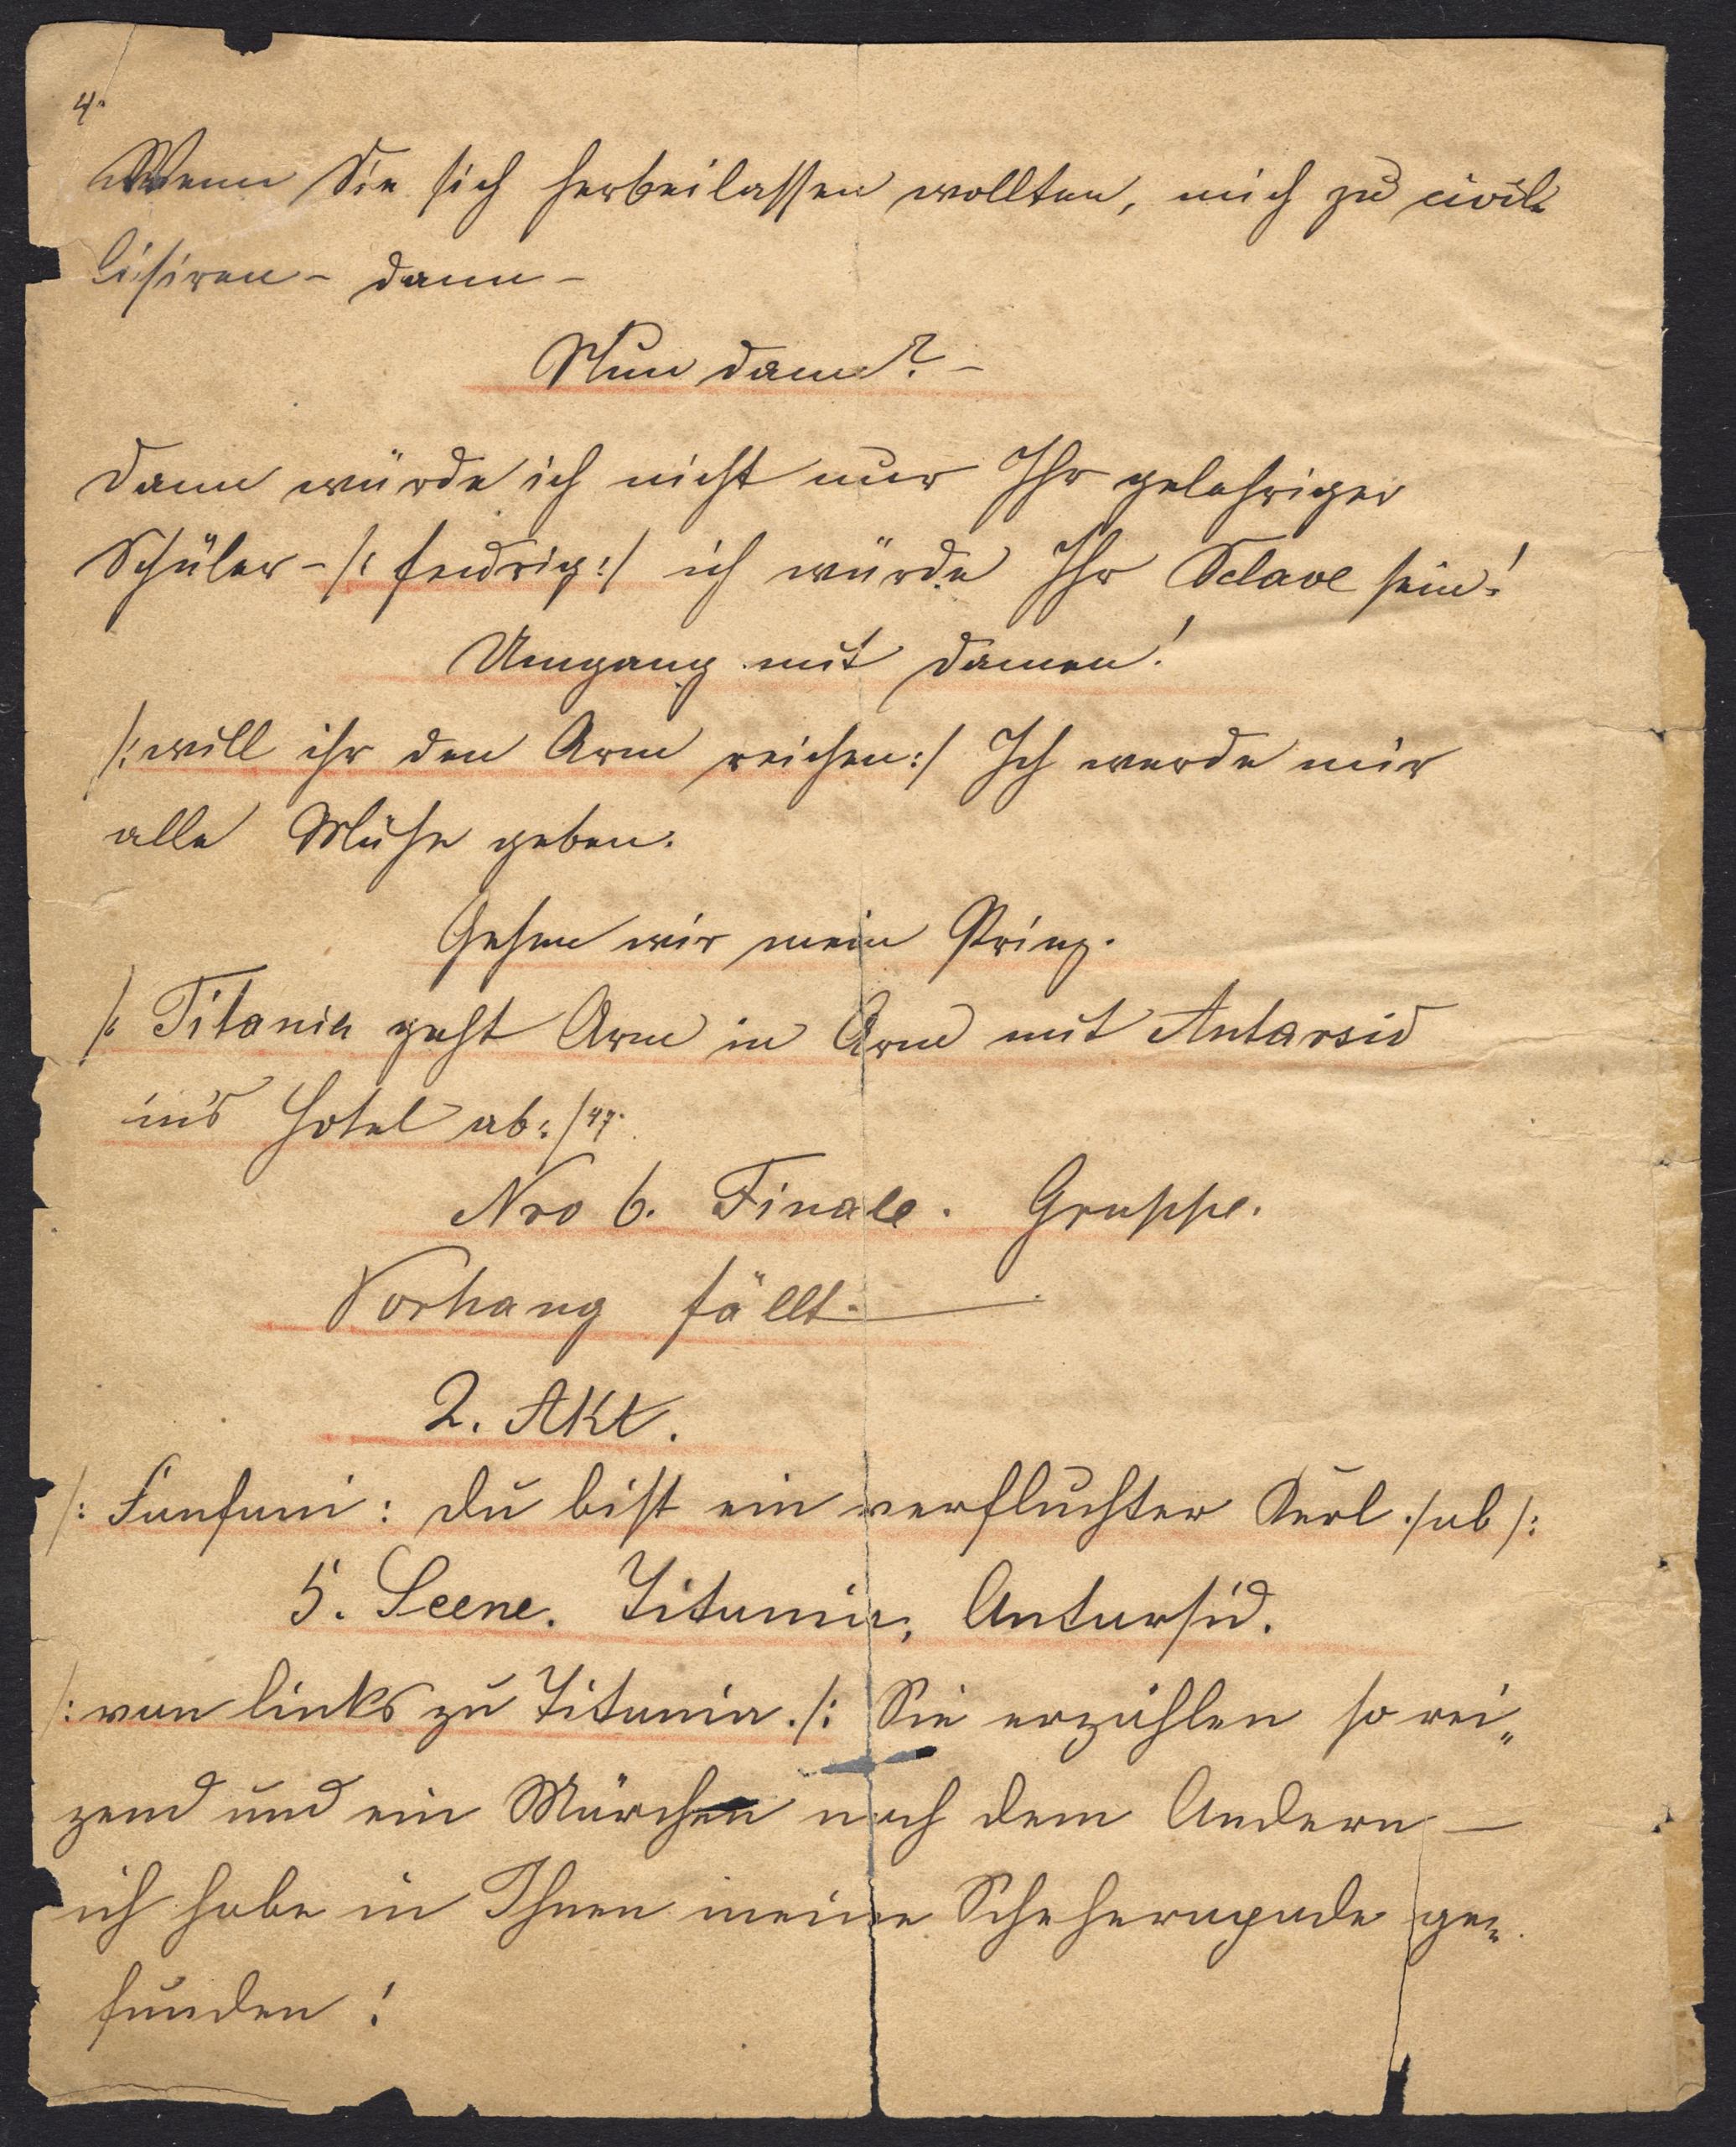 4.
Wenn Sie sich herbeilassen wollten, mich zu civi-
lisiren - dann -
Nun dann? -
dann würde ich nicht nur Ihr gelehriger
Schüler - /: feurig :/ ich würde Ihr Sclave sein!
Umgang mit Damen!
/: will ihr den Arm reichen :/ Ich werde mir
alle Mühe geben.
Gehen wir mein Prinz.
/: Titania geht Arm in Arm mit Antarsid
in's Hotel ab :/ 47.
Nro 6. Finale. Gruppe.
Vorhang fällt.
2. Akt.
/: Fanfani: du bist ein verfluchter Kerl ./ab/:
5. Scene. Titania, Antarsid.
/: von links zu Titania ./: Sie erzählen so rei„
zend und ein Märchen nach dem Andern —
ich habe in Ihnen meine Scheherazade ge„
funden!